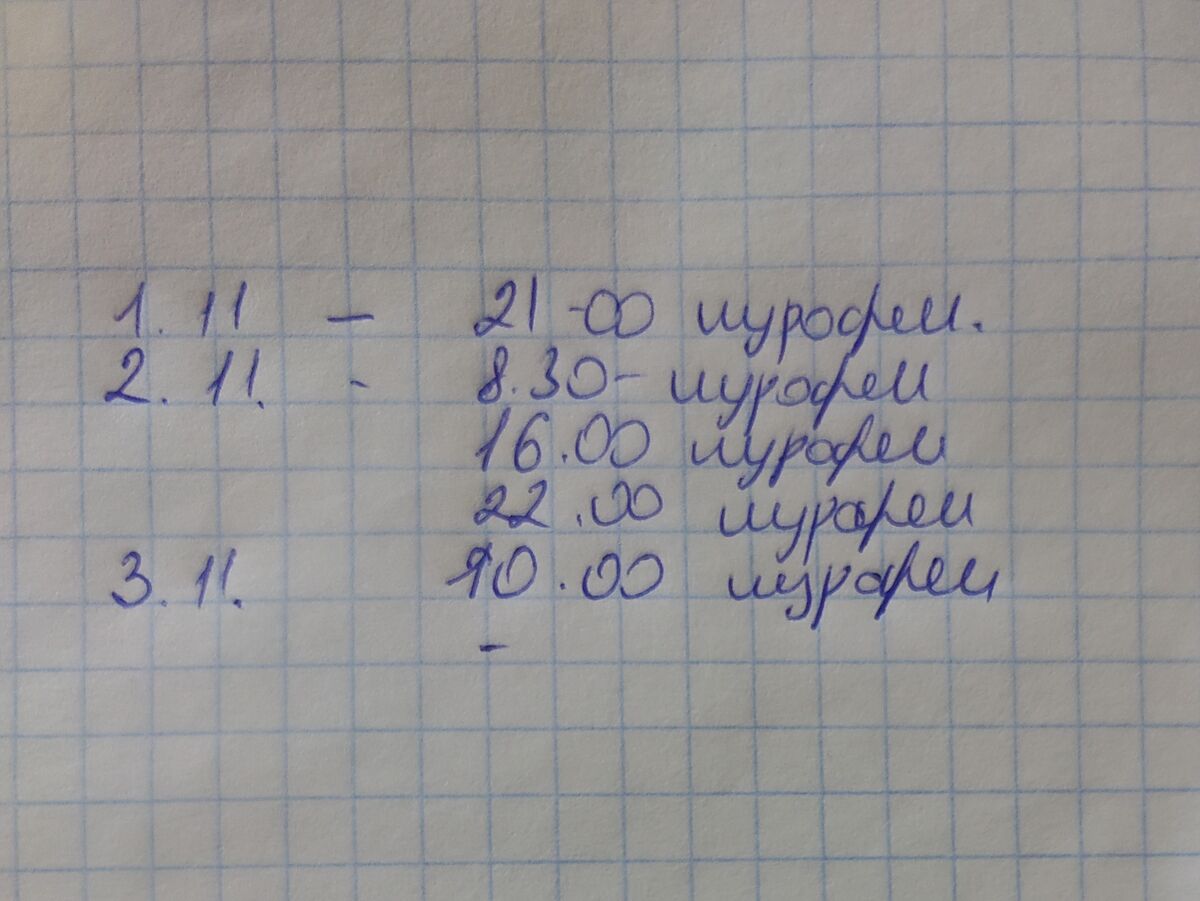 1.11 - 21-00 нурофен.
2.11. - 8.30- нурофен
16.00 нурофен
22.00 нурофен
3.11. 10.00 нурофен
-